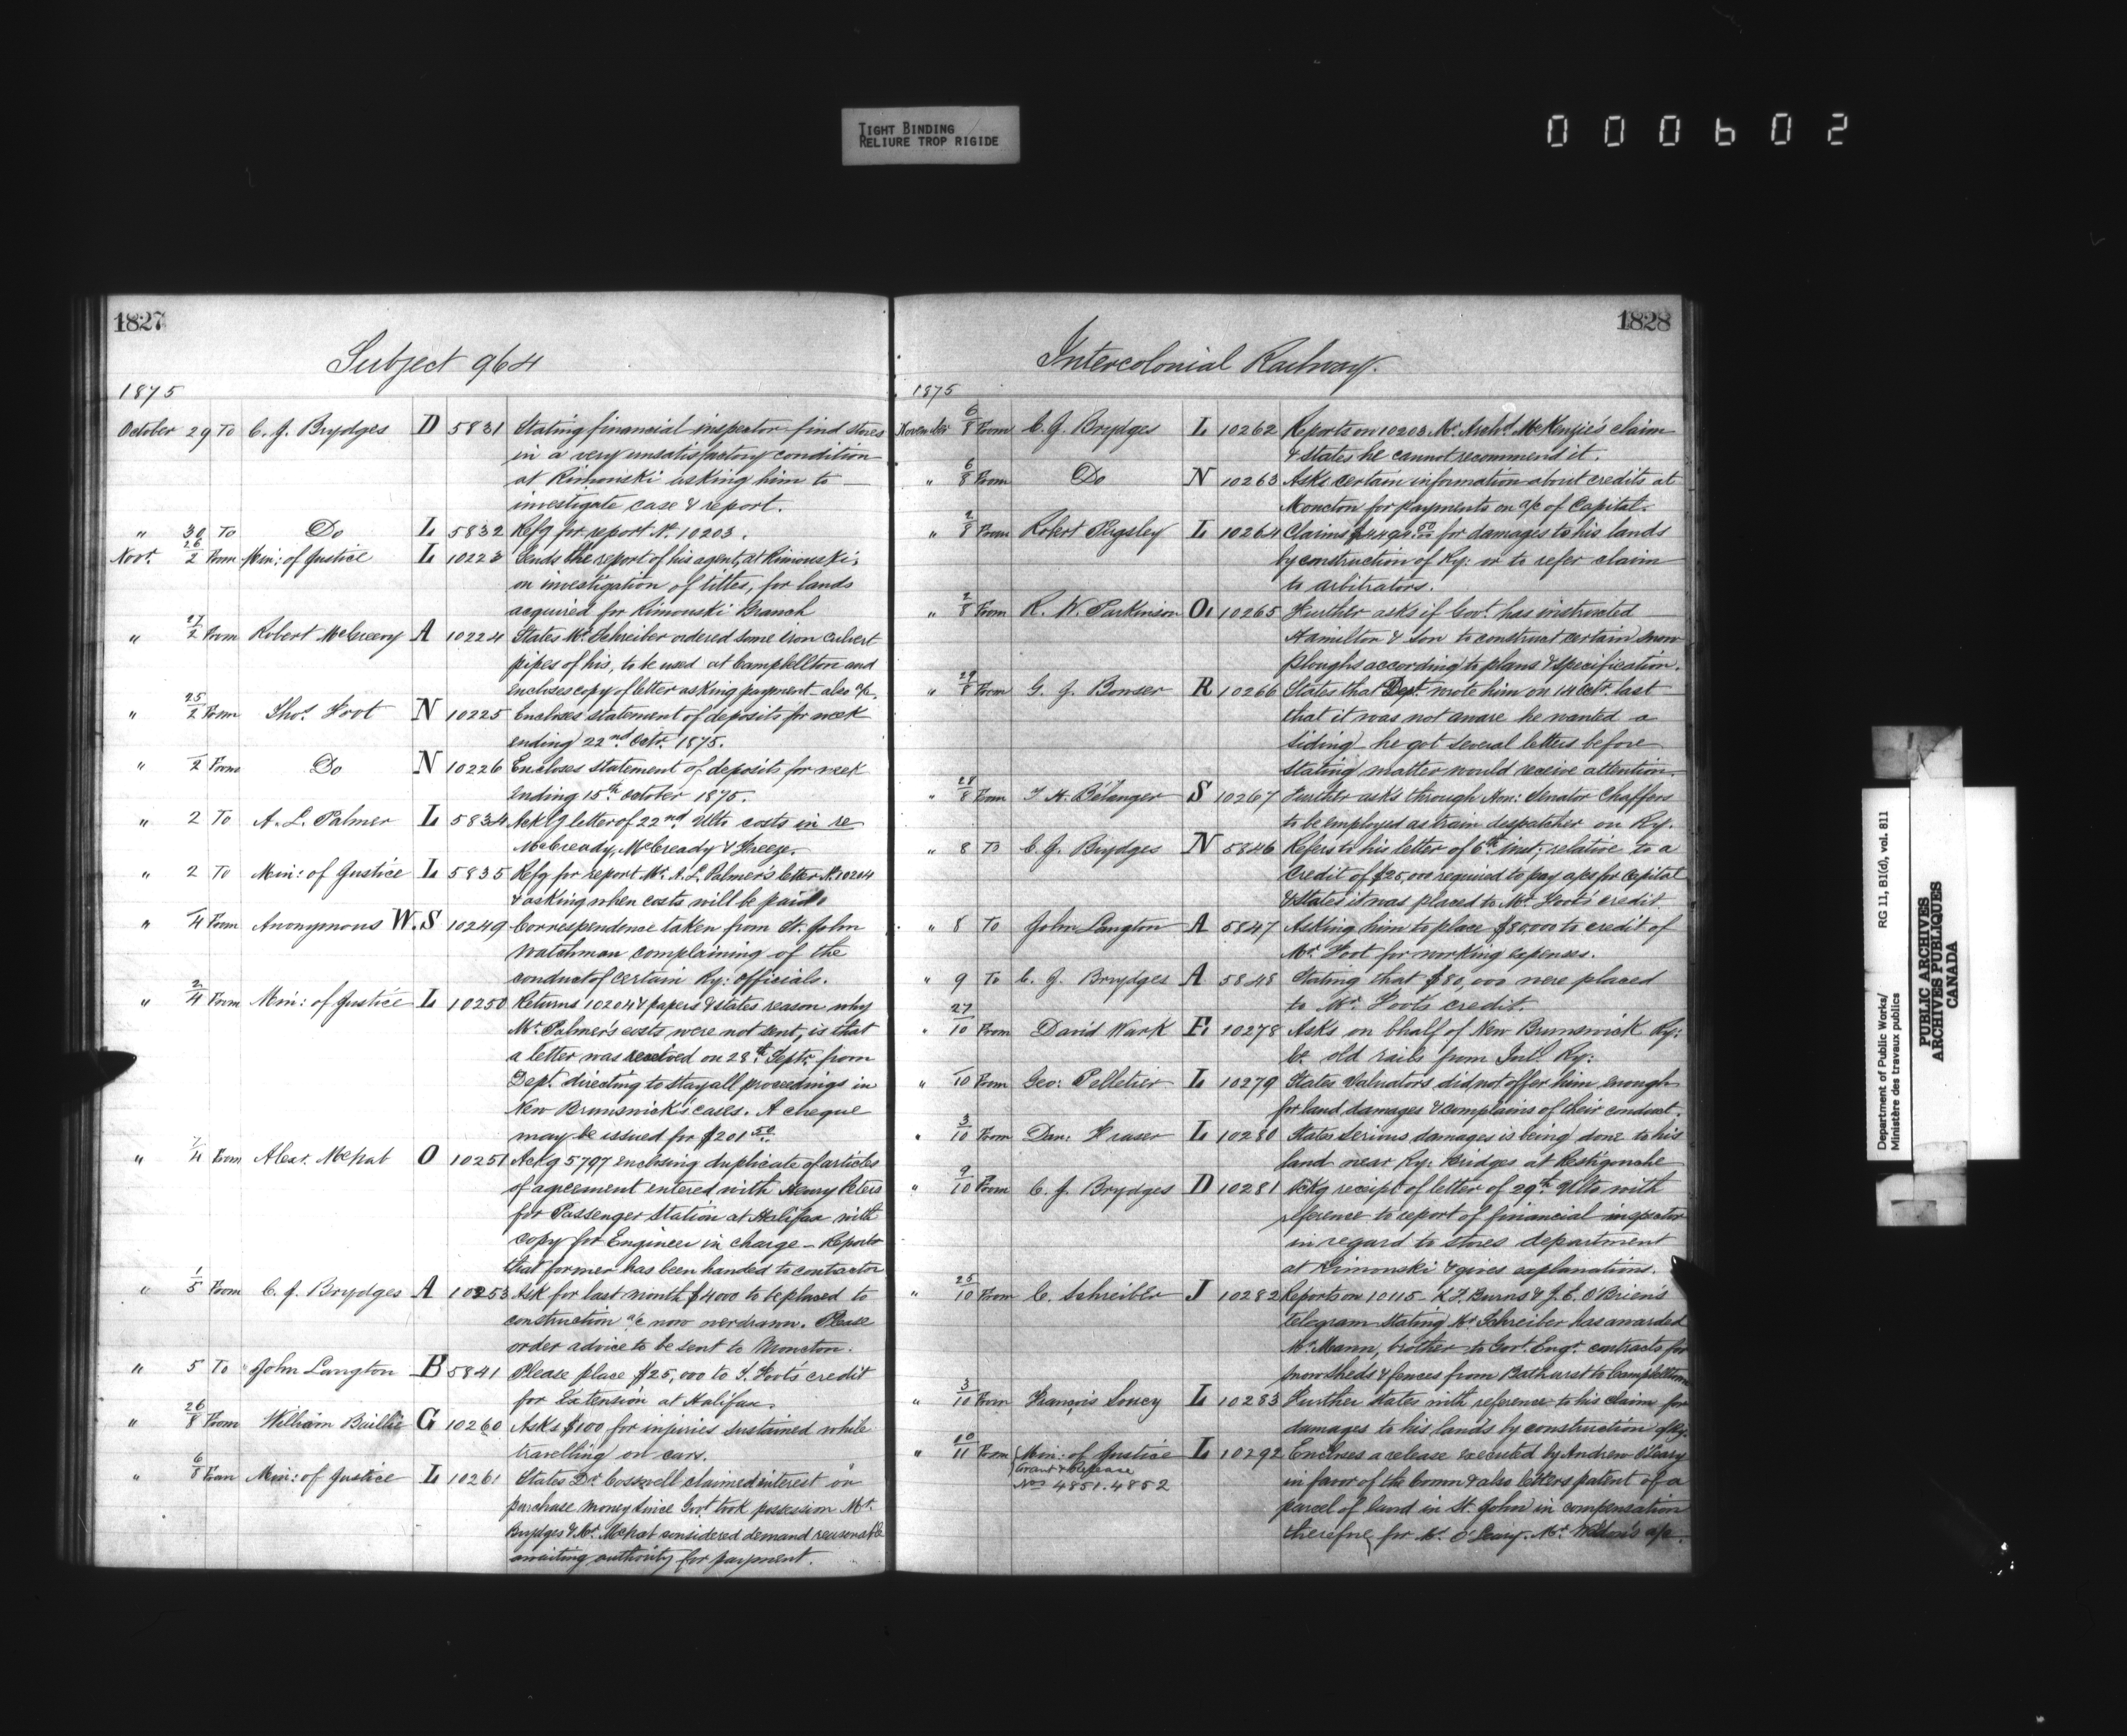 TIGHT BINDING
RELIURE TROP RIGIDE
000602
1827
Subject 964
1875
October 29 To C. J. Brydges D 5831 Stating financial inspector find stores
in a very unsatisfactory condition
at Rimouski asking him to
investigate case & report.
" 30 To Do L 5832 Refg for report No. 10203.
Novr. 26/2 From Min: of Justice L 10223 Sends the report of his agent, at Rimouski,
on investigation of titles, for lands
acquired for Rimouski Branch
" 27/2 From Robert McGreevy A 10224 States Mr. Schreiber ordered some iron culvert
pipes of his, to be used at Campbellton and
encloses copy of letter asking payment also a/c.
" 25/2 From Thos. Foot N 10225 Encloses statement of deposits for week
ending 22nd Octr. 1875.
" /2 From Do N 10226 Encloses statement of deposits for week
ending 15th October 1875.
" 2 To A. L. Palmer L 5834 Ackg letter of 22nd Ulto costs in re
McCready, McCready & Freeze.
" 2 To Min: of Justice L 5835 Refg for report Mr. A. L. Palmer's letter No. 10204
& asking when costs will be paid.
" /4 From Anonymous W.S 10249 Correspondence taken from St. John
Watchman complaining of the
conduct of certain Ry: officials.
" 2/4 From Min: of Justice L 10250 Returns 10204 & papers & states reason why
Mr. Palmer's costs were not sent, is that
a letter was received on 28th Septr. from
Dept. directing to stay all proceedings in
New Brunswick's cases. A cheque
may be issued for $201.50
" /4 From Alexr. McNab O 10251 Ackg 5797 enclosing duplicate of articles
of agreement entered with Henry Peters
for Passenger Station at Halifax with
copy for Engineer in charge - Reports
that former has been handed to contractor
" 1/5 From C. J. Brydges A 10253 Ask for last month $4000 to be placed to
construction a/c now overdrawn. Please
order advice to be sent to Moncton.
" 5 To John Langton B 5841 Please place $25,000 to T. Foot's credit
for Extension at Halifax.
" 26/8 From William Baillie G 10260 Asks $100 for injuries sustained while
travelling on cars.
" 6/8 From Min: of Justice L 10261 States Dr. Cosswell claimed interest on
purchase money since Govt. took possession Mr.
Brydges & Mr. McNab considered demand reasonable
awaiting authority for payment.
1828
Intercolonial Railway.
1875
November 6/8 From C. J. Brydges L 10262 Reports on 10203 Mr. Archd. McKenzie's claim
& states he cannot recommend it.
" 6/8 From Do N 10263 Asks certain information about credits at
Moncton for payments on a/c of Capital.
" 2/8 From Robert Pugsley L 10264 Claims $4492.50 for damages to his lands
by construction of Ry: or to refer claim
to arbitrators.
" 2/8 From R. W. Parkinson O. 10265 Further asks if Govt. has instructed
Hamilton & Son to construct certain snow
ploughs according to plans & specification.
" 29/8 From G. J. Bowser R 10266 States that Dept. wrote him on 14 Octr. last
that it was not aware he wanted a
siding he got several letters before
stating matter would receive attention.
" 28/8 From T. H. Bélanger S 10267 Further asks through Hon: Senator Chaffers
to be employed as train despatcher on Ry.
" 8 To C. J. Brydges N 5846 Refers to his letter of 6th inst; relative to a
Credit of $25,000 required to pay a/cs for Capital
& states it was placed to Mr. Foot's credit
" 8 To John Langton A 5847 Asking him to place $80000 to credit of
Mr. Foot for working expenses.
" 9 To C. J. Brydges A 5848 Stating that $80,000 were placed
to Mr. Foot's credit.
" 27/10 From David Wark E. 10278 Asks on bhalf of New Brunswick Ry:
Co. old rails from Intl. Ry:
" /10 From Geo: Pelletier L 10279 States Valuators did not offer him enough
for land damages & complains of their conduct.
" 3/10 From Dan: Fraser L 10280 States serious damages is being done to his
land near Ry: Bridges at Restigouche
" 9/10 From C. J. Brydges D 10281 Ackg receipt of letter of 29th Ulto with
reference to report of financial inspector
in regard to stores department
at Rimouski & gives explanations.
" 25/10 From C. Schreiber J 10282 Reports on 10115 - K. F. Burns & J. C. O'Brien's
telegram stating Mr. Schreiber has awarded
Mr. Mann, brother to Govt. Engr. contracts for
snow sheds & fences from Bathurst to Campbellton
" 3/10 From François Soucy L 10283 Further states with reference to his claim for
damages to his lands by construction of Ry:
" 10/11 From Min: of Justice L 10292 Encloses a release executed by Andrew O'Leary
Grant & Release
Nos 4851. 4852
in favor of the Crown & also letters patent of a
parcel of land in St. John in compensation
therefore for Mr. O'Leary. Mr. Weldon's a/c.
Department of Public Works/ RG 11, B1(d), vol. 811
Ministère des travaux publics
PUBLIC ARCHIVES
ARCHIVES PUBLIQUES
CANADA